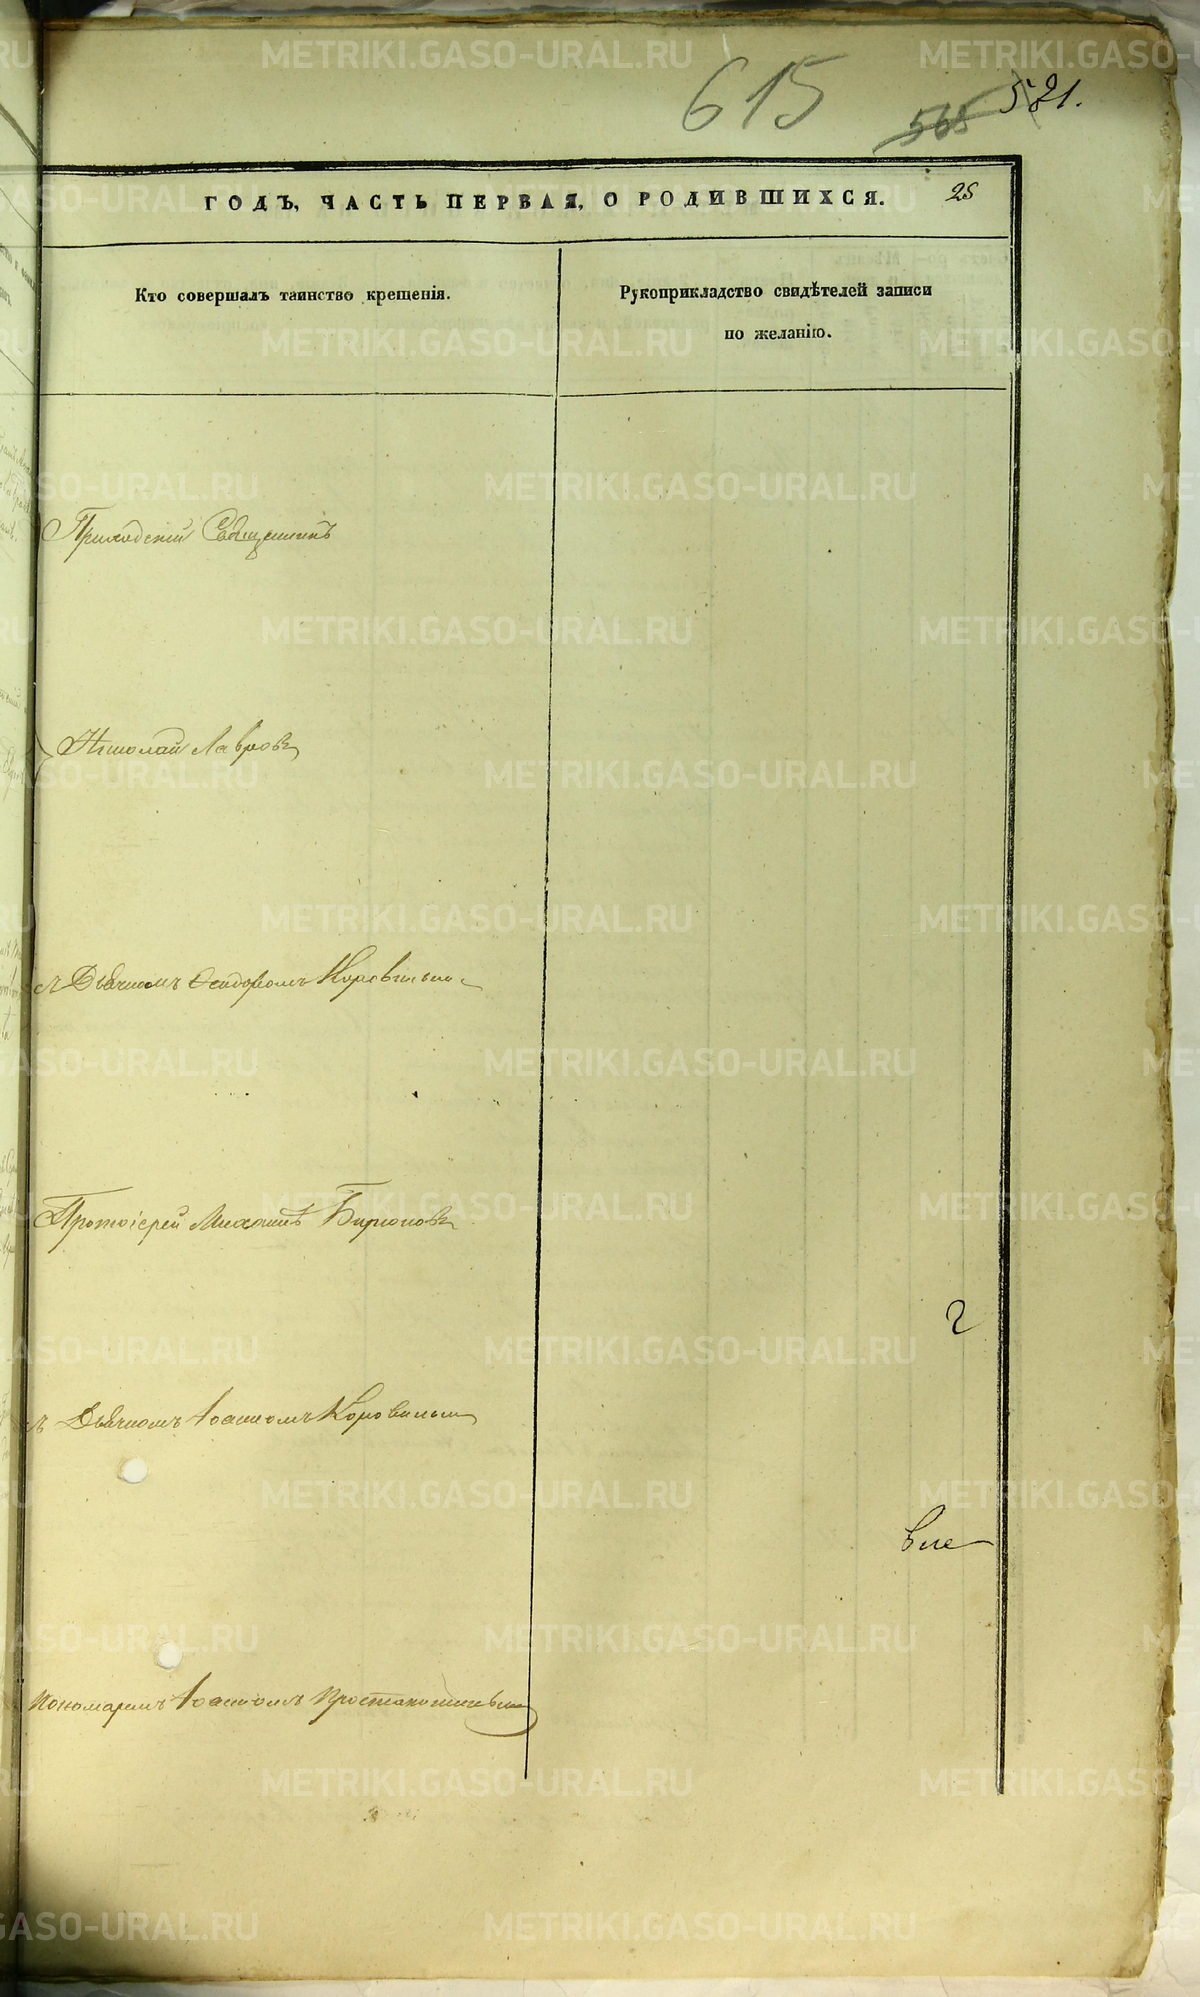 615
565 521.
ГОДЪ, ЧАСТЬ ПЕРВАЯ, О РОДИВШИХСЯ. 25
Кто совершалъ таинство крещенія.
Рукоприкладство свидѣтелей записи
по желанію.
Приходскій Священникъ
Николай Лавровъ
съ Дьячкомъ Ѳеодоромъ Коровинымъ
Протоіерей Михаилъ Бирюковъ
съ Дьячкомъ Іоанномъ Коровинымъ
Пономаремъ Іоанномъ
METRIKI.GASO-URAL.RU